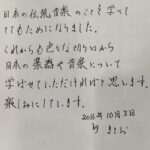 日本の伝統音楽のことを学べて
とてもためになりました。
これからも色々な切り口から
日本の楽器や音楽について
学ばせていただければと思います。
楽しみにしています。
2016年10月3日
by まさお